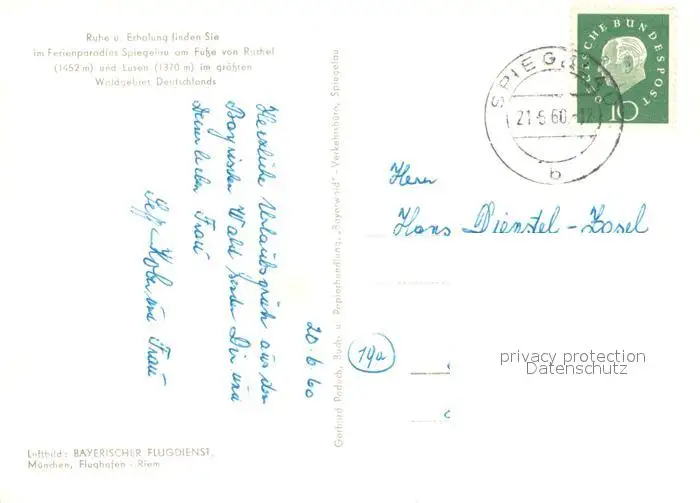 Ruhe u. Erholung finden Sie
im Ferienparadies Spiegelau am Fuße von Rachel
(1452 m) und Lusen (1370 m) im größten
Waldgebiet Deutschlands
Herzliche Urlaubsgrüße aus dem
Bayrischen Wald senden Dir und
Deiner lieben Frau
Sepp und Frau
20.6.60
Gerhard Buch- u. Papierhandlung, "Bayerwald" - Verkehrsbüro, Spiegelau
DEUTSCHE BUNDESPOST
10
SPIEGELAU
21.6.60.-12
b
Herr
Hans Dienstel-Zasel
19a
privacy protection
Datenschutz
Luftbild: BAYERISCHER FLUGDIENST,
München, Flughafen - Riem